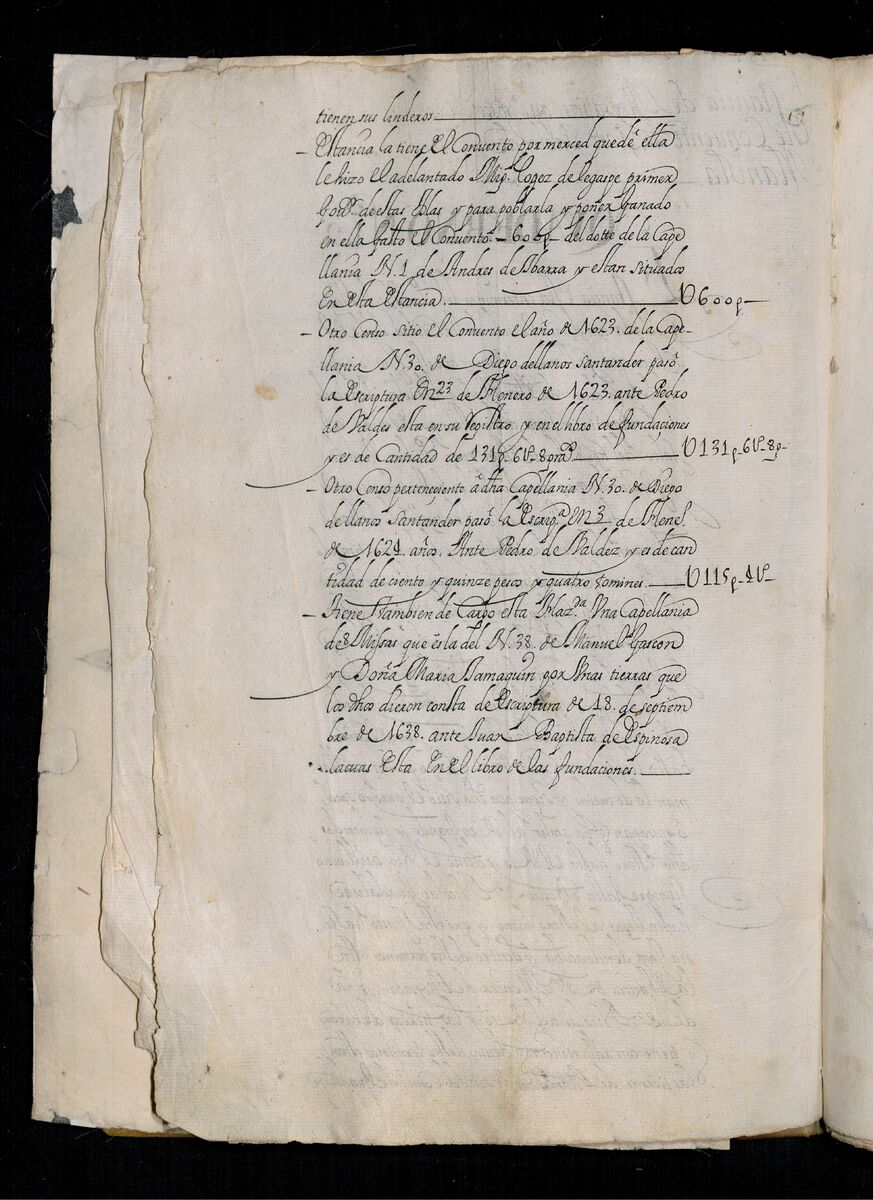 tienen sus linderos
– Estancia la tiene El Convento por merced que de ella
le hizo el adelantado Mig.l lopez de legaspe primer
Gov.or de estas Islas y para poblarla y poner Ganado
en ella Gasto el Convento – 600p – del dotte de la Cape
llania N.1 de Andres de Ibarra y estan situados
En esta Estancia. U600p–
– Otro Censo sitio el Convento el año de 1623. de la Cape-
llania N.30. de Diego de llanos Santander paso
la Escriptura En 23 de Henero de 1623. ante Pedro
de Valdes esta en su registro y en el libro de fundaciones
y es de Cantidad de 131p–6t.s–8 U131p–6t.s–8p–
– Otro Censo perteneçiente a dha Capellania N.30. de Diego
de llanos Santander paso la Escrip.a En 3 de Hene.o
de 1624. años. Ante Pedro de Valdez y es de can
tidad de ciento y quinze pesos y quatro tomines. U115p–4t.s–
– Tiene tambien de Cargo esta Haz.da Una Capellania
de 8 Missas que es la del N.38. de Manuel Gascon
y Doña Maria Tamaquin por Unas tierras que
los dhos dieron consta de Escriptura de 18. de septiem
bre de 1638. ante Juan Baptista de Espinosa
la cual Esta En el libro de las fundaciones.